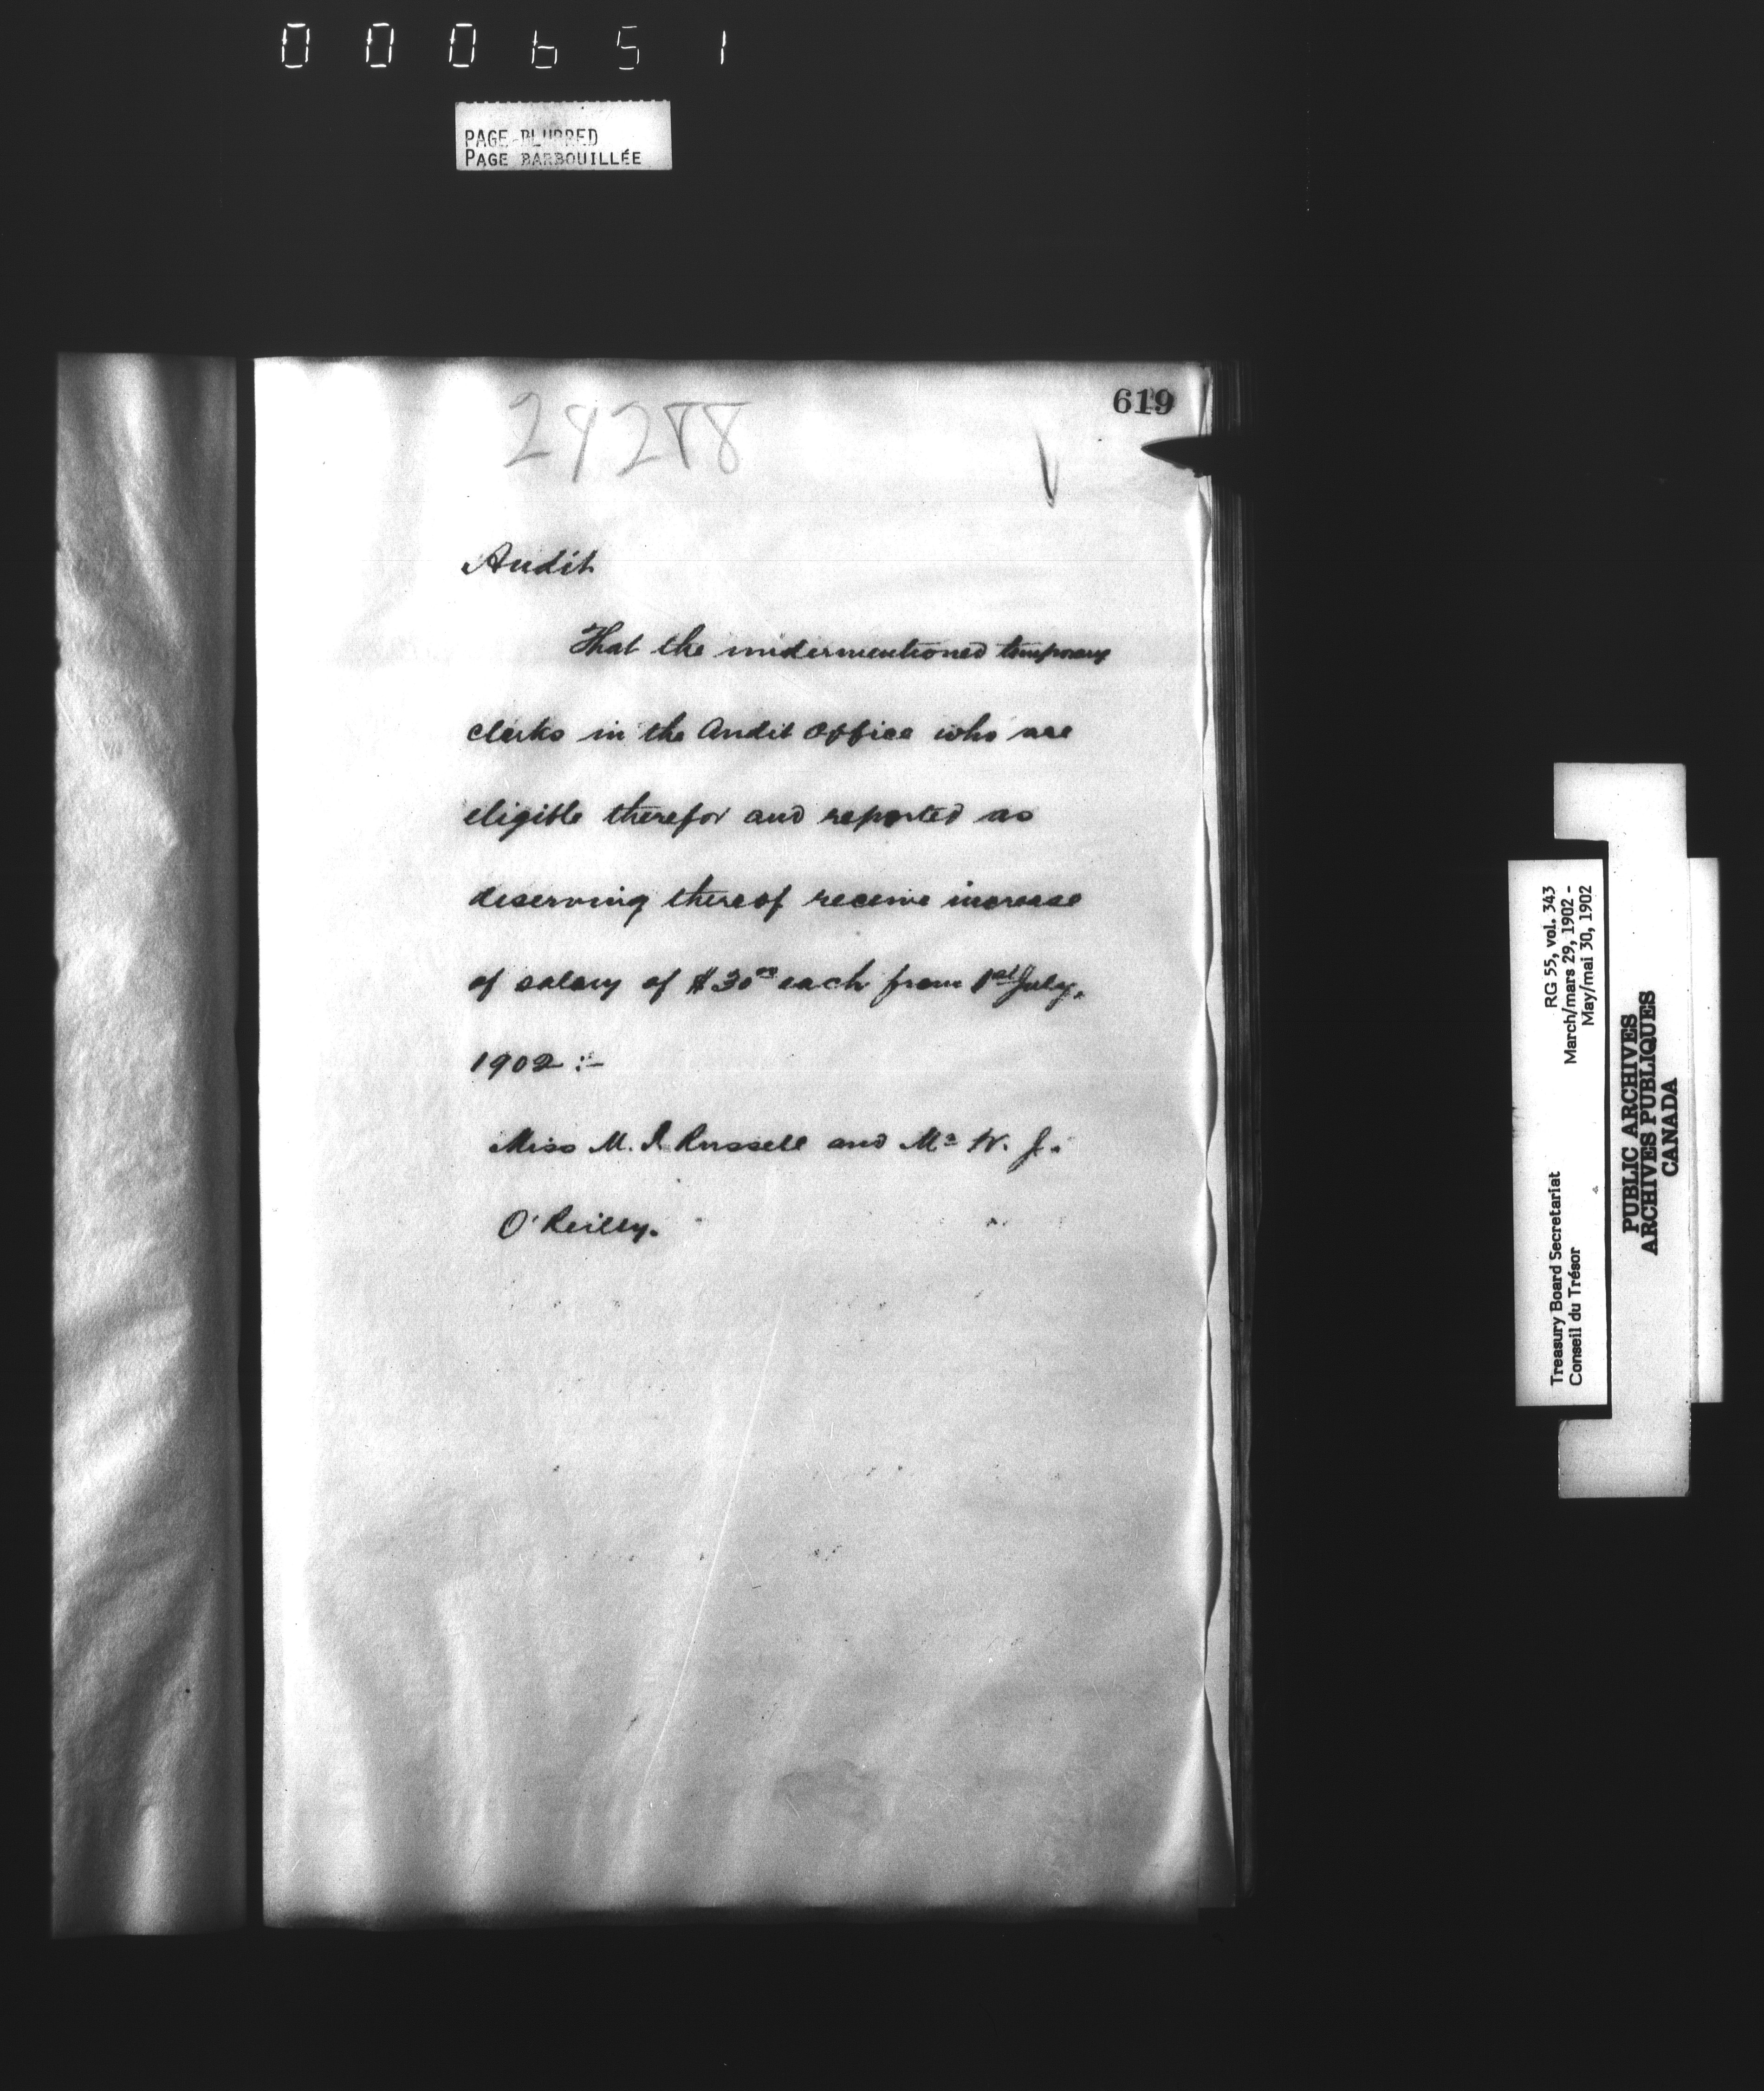 000651
PAGE BLURRED
PAGE BARBOUILLÉE
619
Audit
That the undermentioned temporary
clerks in the Audit Office who are
eligible therefor and reported as
deserving thereof receive increase
of salary of $30⁰⁰ each from 1st July,
1902:-
Miss M. I. Russell and Mr W. J.
O'Reilly.
RG 55, vol. 343
March/mars 29, 1902 -
May/mai 30, 1902
Treasury Board Secretariat
Conseil du Trésor
PUBLIC ARCHIVES
ARCHIVES PUBLIQUES
CANADA